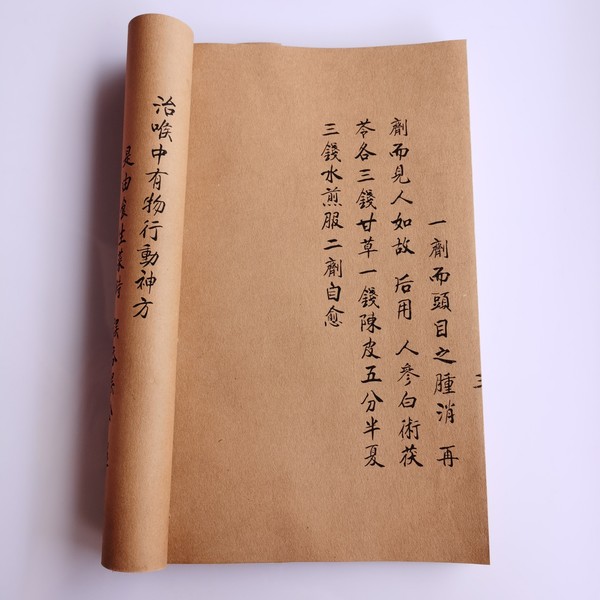 一劑而頭目之腫消 再
劑而見人如故 后用 人參白術茯
苓各三錢甘草一錢陳皮五分半夏
三錢水煎服二劑自愈
治喉中有物行動神方